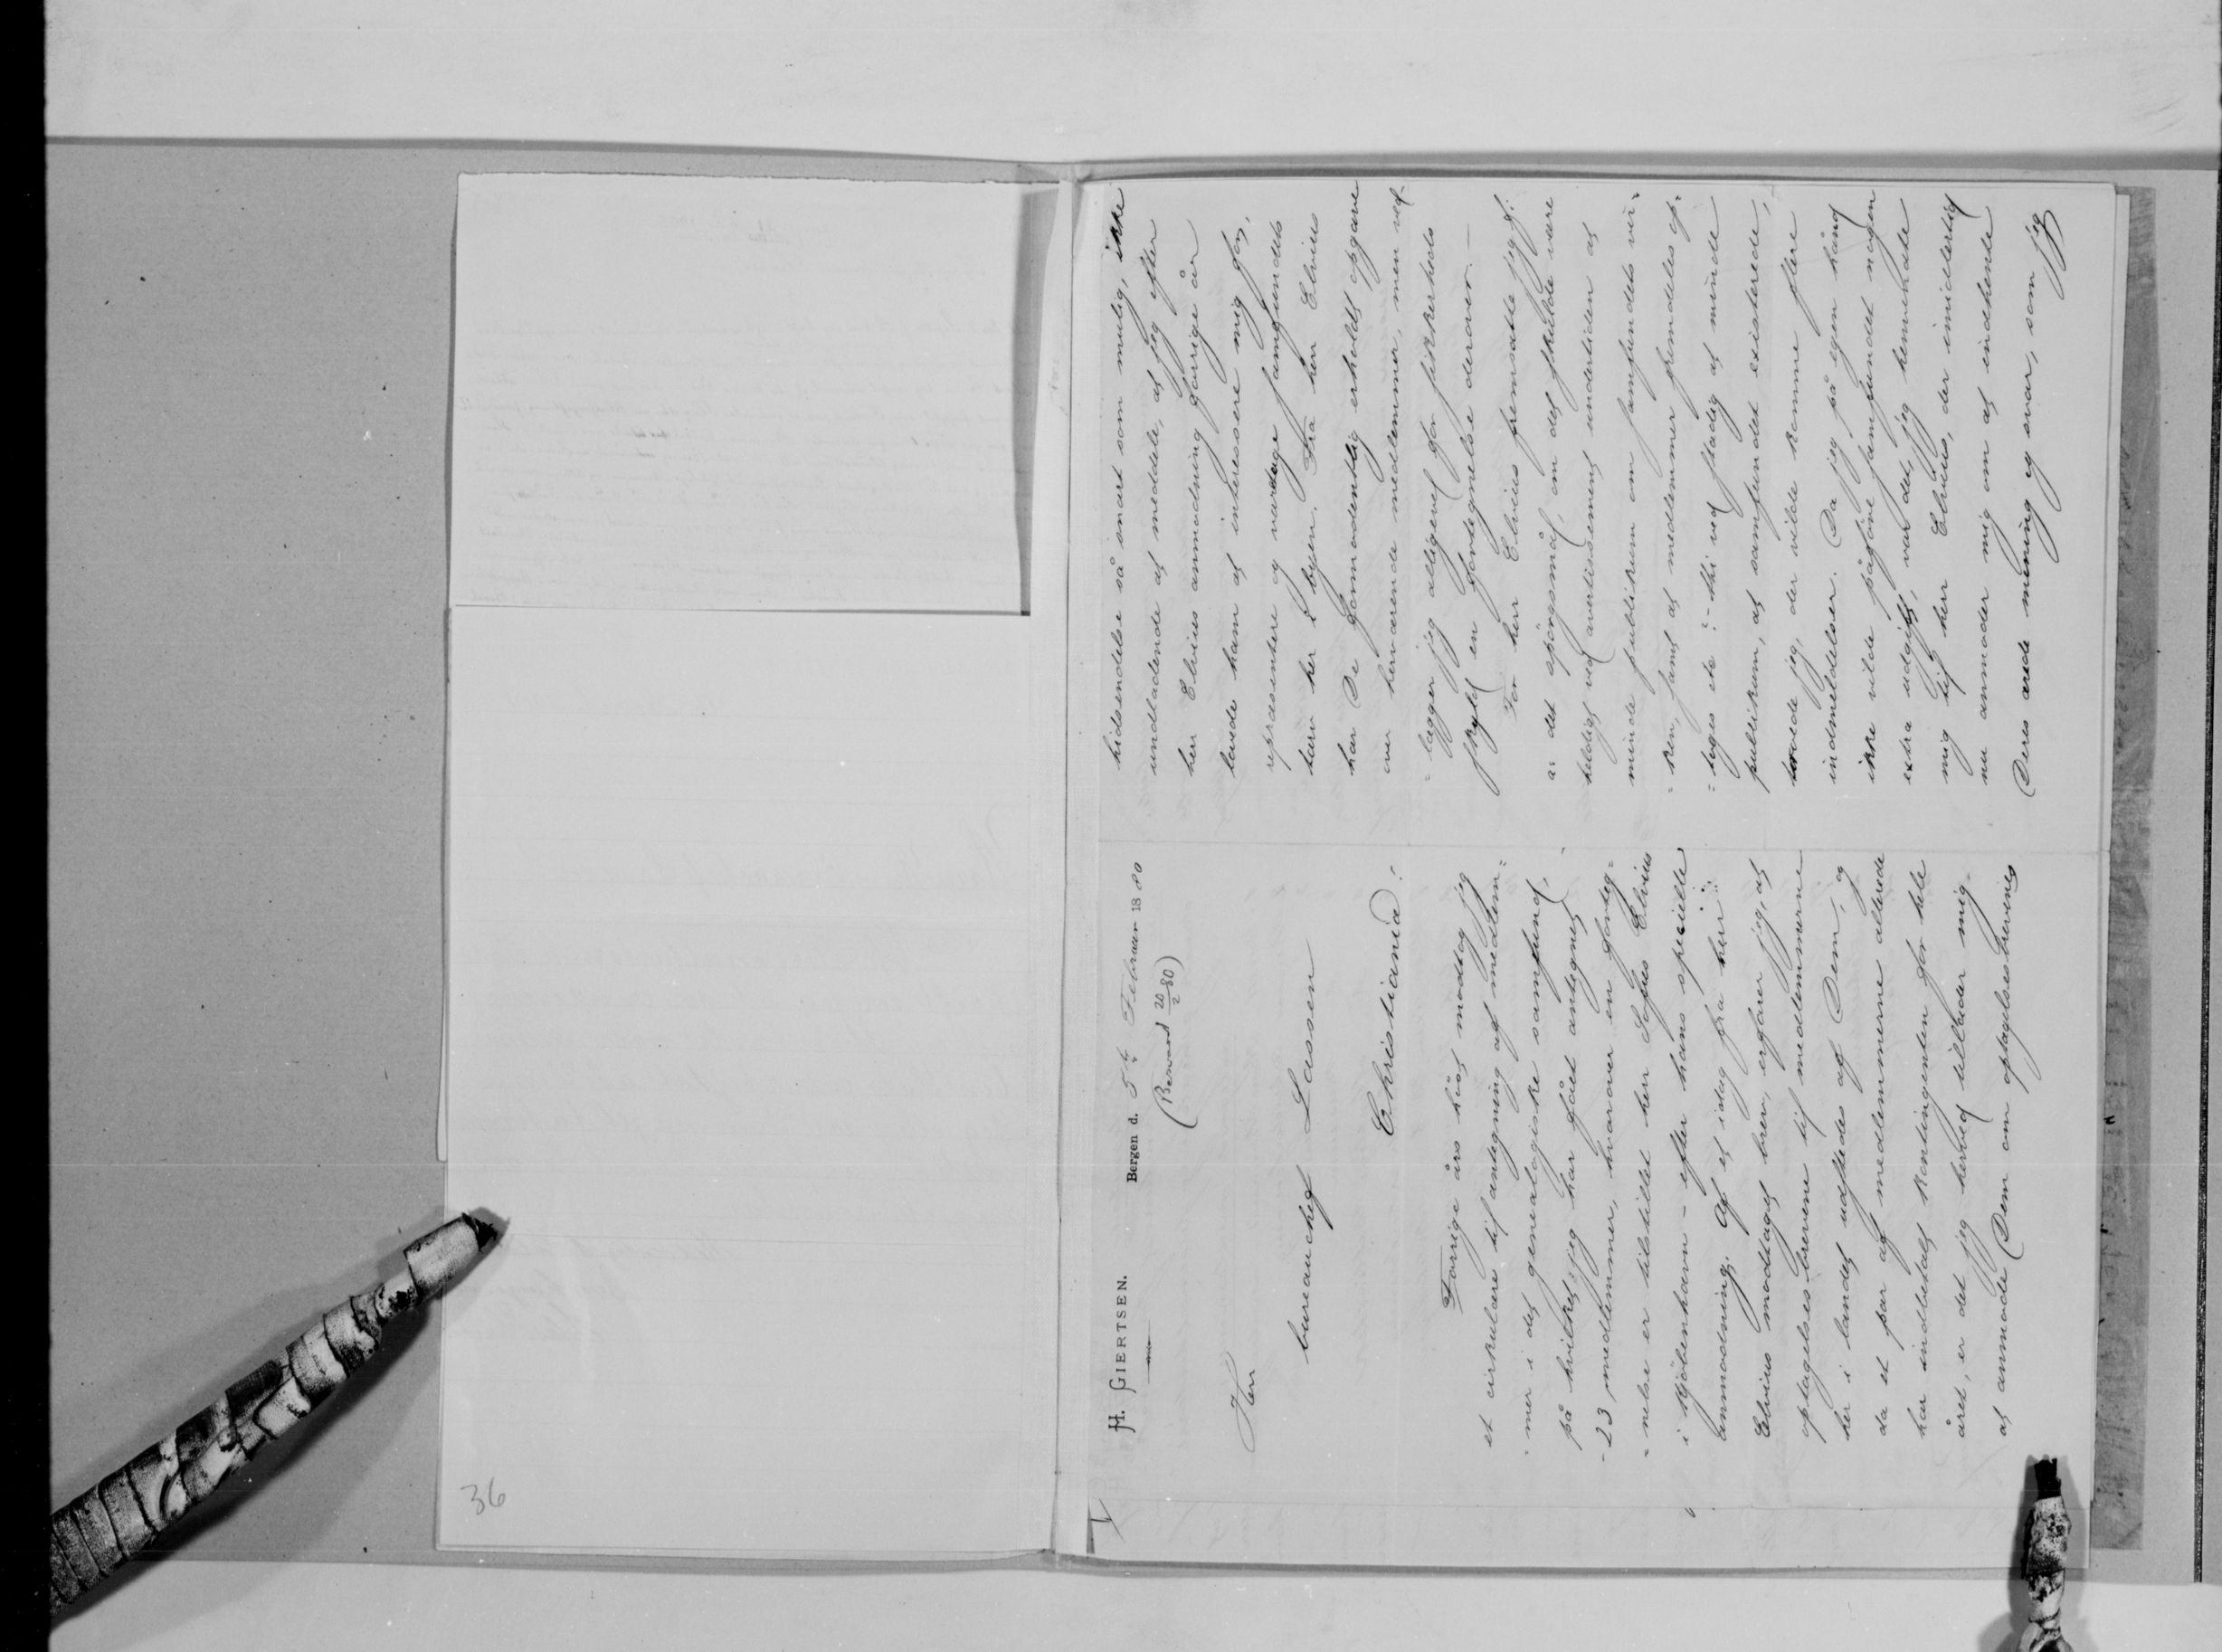 36
H. GIERTSEN.
Bergen d. 5te Februar 1880
(Besvaret 20/2 80)
Herr
bureauchef Lassen
Christiania!
Forrige års høst modtog jeg
et cirkulære til antegning af medlem=
=mer i det genealogiske samfund,
på hvilket jeg har fået antegnet
-23 medlemmer, hvarover en forteg=
=nelse er tilstillet herr Sofus Elvius
i Kjöbenhavn - efter hans specielle
anmodning. Af et idag fra herr
Elvius modtaget brev, erfarer jeg, at
optagelsesbrevene til medlemmerne
her i landet udstedes af Dem, og
da et par af medlemmerne allerede
har indbetalt kontingenten for hele
året, er det jeg herved tillader mig
at anmode Dem om optagelsesbrevenes
hidsendelse så snart som mulig, ikke
undladende at meddele, at jeg efter
herr Elvius anmodning forrige år
lovede ham at interessere mig for,
repræsentere og varetage samfundets
tarv her i byen. Fra herr Elvius
har De formodentlig erholdt opgave
over herværende medlemmer, men ved=
=lægger jeg alligevel for sikkerheds
skyld en fortegnelse derover. —
For herr Elvius fremsatte jeg f:
a: det spörgsmål, om det skulde være
heldigt ved avertissement undertiden at
minde publikum om samfundets vir=
=ken, samt at medlemmer fremdeles op=
=toges etc: thi ved stadig at minde
publikum, at samfundet existerede,
troede jeg, der vilde komme flere
indmeldelser. Da jeg på egen hånd
ikke vilde påføre samfundet nogen
extra udgift, var det, jeg henvendte
mig til herr Elvius, der imidlertid
nu anmoder mig om at indhente
Deres ærede mening og svar, som jeg